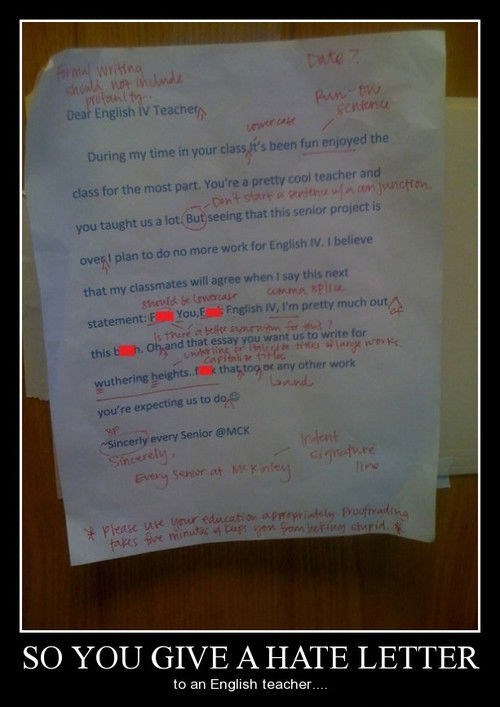 Formal writing
should not include
profanity...
Date?
Dear English IV Teacher,
Run-on
sentence
lowercase
During my time in your class, it's been fun enjoyed the
class for the most part. You're a pretty cool teacher and
Don't start a sentence w/ a conjunction.
you taught us a lot. But seeing that this senior project is
over, I plan to do no more work for English IV. I believe
that my classmates will agree when I say this next
should be lowercase
comma splice
statement: F You, F English IV, I'm pretty much out
of
Is there a better synonym for this?
this b h. Oh, and that essay you want us to write for
underline or italicize titles of large works.
capitalize title
wuthering heights..f k that, too or any other work
and
you're expecting us to do.☺
sp
~Sincerly every Senior @MCK
Sincerely,
Every senior at McKinley
Indent
signature
line
* Please use your education appropriately. Proofreading
takes five minutes & keeps you from looking stupid. *
SO YOU GIVE A HATE LETTER
to an English teacher....